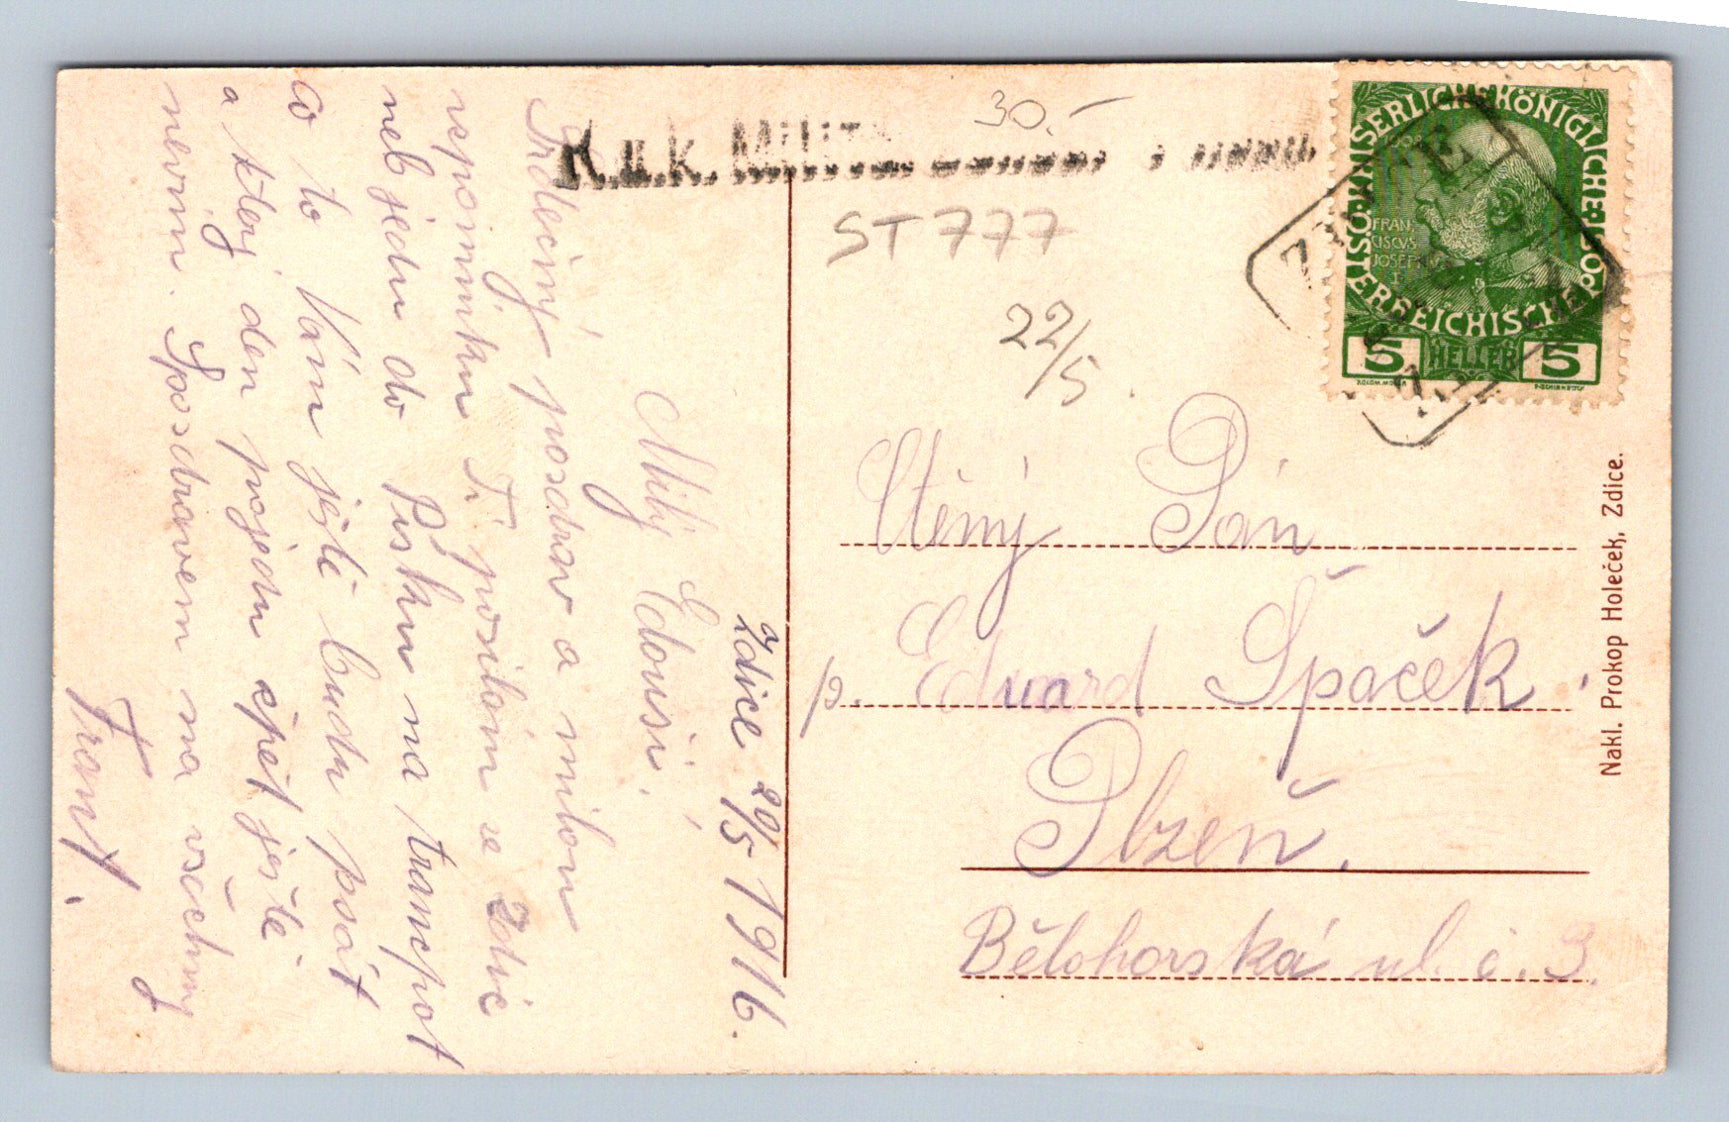 Zdice 20/5 1916.
Milý Edousi!
Srdečný pozdrav a milou
vzpomínku Ti posílám ze Zdic
neb jedu do Písku na transpot
co to Vám ještě budu psát
a který den pojedu zpět ještě
nevím. S pozdravem na všechny
Frant.
K.u.K. MILIT
30.-
ST 777
22/5.
KAISERLICHE KÖNIGLICHE ÖSTERREICHISCHE POST
1908
FRAN
CISCVS
JOSEPH
I
5 HELLER 5
ZDICE
Ctěný Pán
p. Eduard Špaček
Plzeň.
Bělohorská ul. č. 3.
Nakl. Prokop Holeček, Zdice.